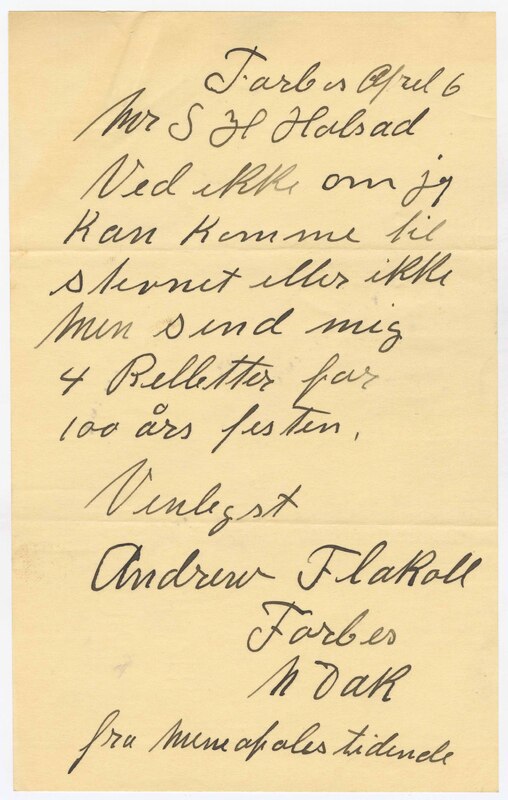 Forbes April 6
Mr S H Holsad
Ved ikke om jg
Kan Komme til
stevnet eller ikke
Men send mig
4 Relletter for
100 års festen.
Venlegst
Andrew Flakoll
Forbes
N Dak
fra Mineapoles tidende